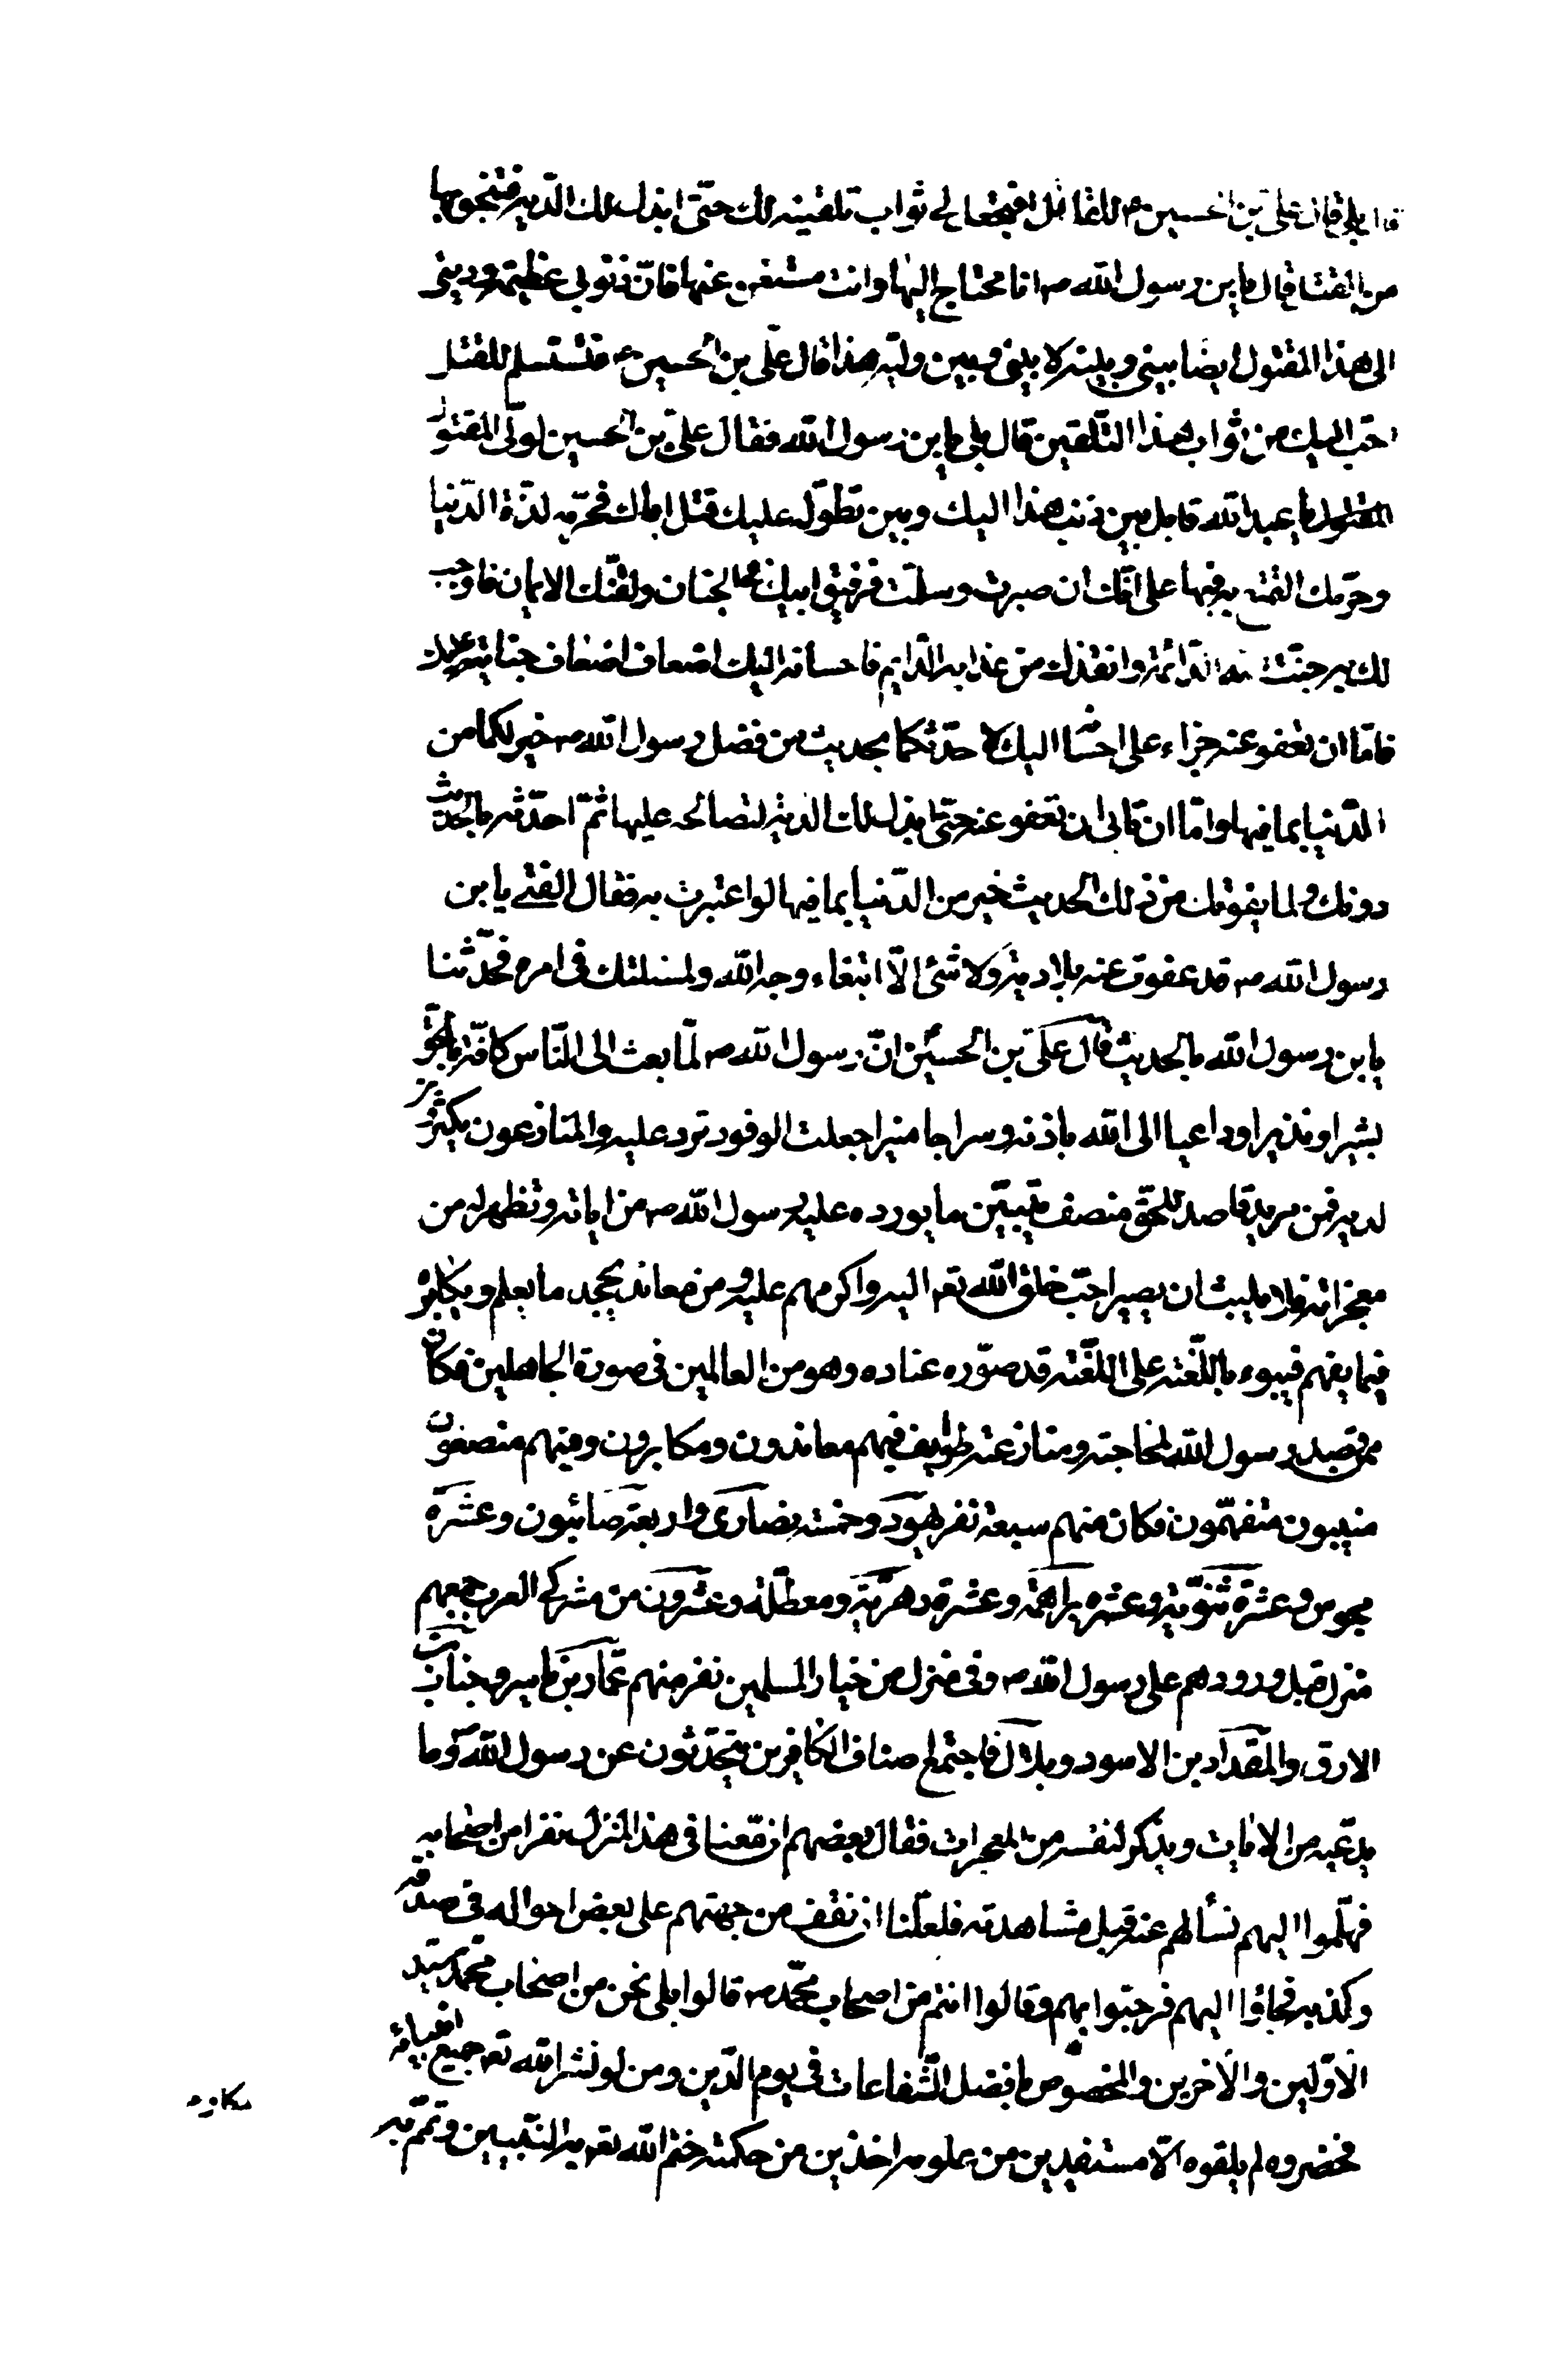 قال بلى قال علي بن الحسين ع للقاتل افتجعل لي ثواب تلقينه لك حتى ابذل لك الدية فتنجو بها
من القتل قال يابن رسول الله ص انا محتاج اليها وانت مستغن عنها فان ذنوبي عظيمة وذنبي
الى هذا المقتول ايضا بيني وبينه لا بيني وبين وليه هذا قال علي بن الحسين ع فتستسلم للقتل
احب اليك من ثواب هذا التلقين قال بلى يابن رسول الله فقال علي بن الحسين لولي المقتول
يا عبد الله قابل بين ذنب هذا اليك وبين تطوله عليك قتل اباك فحرمه لذة الدنيا
وحرمك التمتع به فيها على انك ان صبرت وسلمت فرفيق ابيك في الجنان ولقنك الايمان فاوجب
لك به جنة الله الدائمة وانقذك من عذابه الدايم فاحسانه اليك اضعاف اضعاف جنايته عليك
فاما ان تعفو عنه جزاء على احسانه اليك لاحدثكما بحديث من فضل رسول الله ص خير لكما من
الدنيا بما فيها واما ان تابى ان تعفو عنه حتى ابذل لك الدية لتصالحه عليها ثم احدثه بالحديث
دونك ولما يفوتك من ذلك الحديث خير من الدنيا بما فيها لو اعتبرت به فقال الفتى يابن
رسول الله ص قد عفوت عنه بلا دية ولا شئ الا ابتغاء وجه الله ولمسئلتك في امره فحدثنا
يابن رسول الله بالحديث قال علي بن الحسين ان رسول الله ص لما بعث الى الناس كافة بالحق
بشيرا ونذيرا وداعيا الى الله باذنه وسراجا منيرا جعلت الوفود ترد عليه والمنازعون يكثرون
لديه فمن مريد قاصد للحق منصف متبين ما يورده عليه رسول الله ص من اياته وتظهر له من
معجزاته فلا يلبث ان يصير احب خلق الله تعه اليه واكرمهم عليه ومن معاند يجحد ما يعلم ويكابره
فيما يفهم فيبوء باللعنة على اللعنة قد صوره عناده وهو من العالمين في صورة الجاهلين فكان
ممن قصد رسول الله لمحاجته ومنازعته طوايف فيهم معاندون ومكابرون وفيهم منصفون
متبينون متفهمون فكان منهم سبعة نفر يهود وخمسة نصارى واربعة صابئون وعشرة
مجوس وعشرة ثنوية وعشرة براهمة وعشرة دهرية ومعطلة وعشرون من مشركي العرب جمعهم
منزل قبل ورودهم على رسول الله ص وفي منزل من خيار المسلمين نفر منهم عمار بن ياسر وخباب بن
الارت والمقداد بن الاسود وبلال فاجتمع اصناف الكافرين يتحدثون عن رسول الله ص وما
يدعيه من الايات ويذكر لنفسه من المعجزات فقال بعضهم ان معنا في هذا المنزل نفرا من اصحابه
فهلموا اليهم نسألهم عنه قبل مشاهدته فلعلنا ان نقف من جهتهم على بعض احواله في صدقه
وكذبه فجاؤا اليهم فرحبوا بهم وقالوا انتم من اصحاب محمد ص قالوا بلى نحن من اصحاب محمد سيد
الاولين والاخرين والمخصوص بافضل الشفاعات في يوم الدين ومن لو نشر الله تعه جميع انبيائه
فحضروه لم يلقوه الا مستفيدين من علومه اخذين من حكمته ختم الله تعه به النبيين وتمم به
مكارم